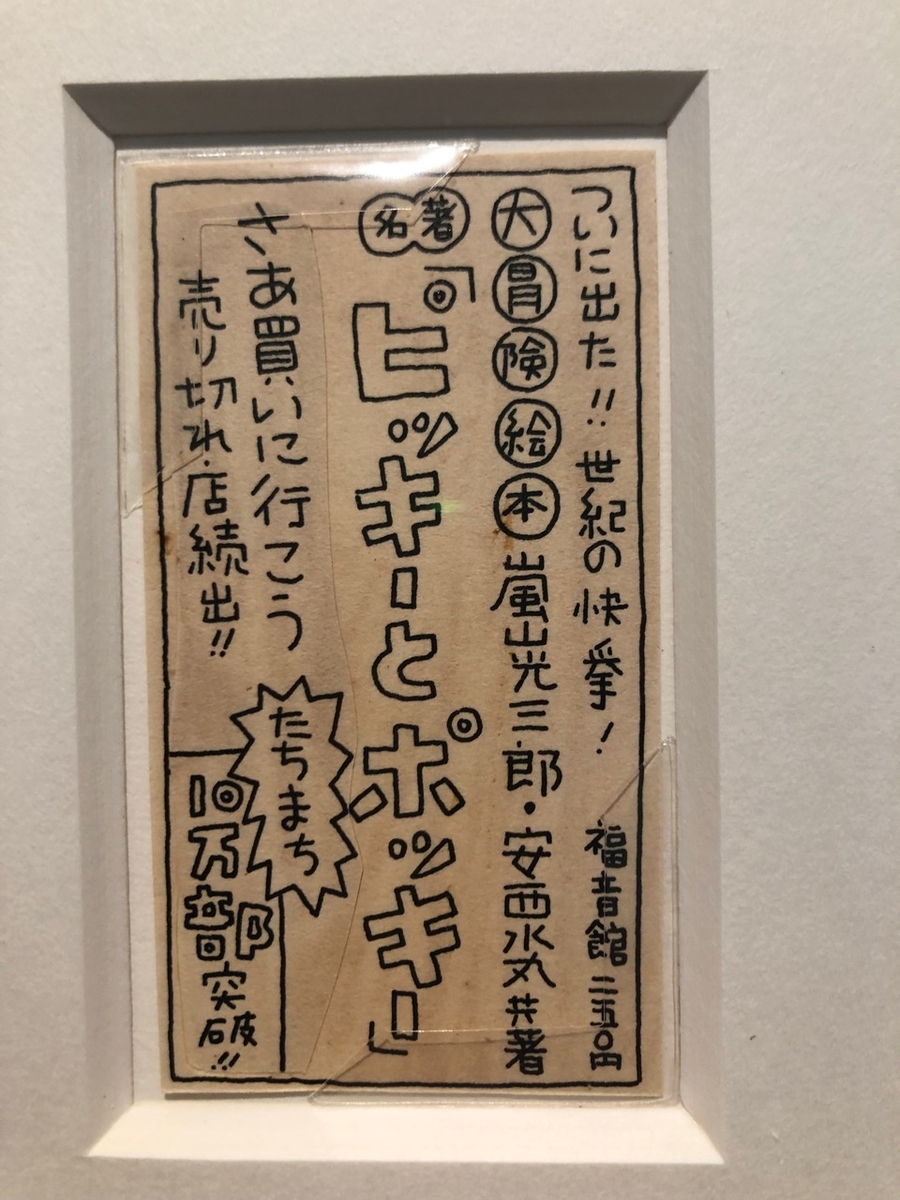 ついに出た!!世紀の快挙!　福音館二五〇円
大冒険絵本　嵐山光三郎・安西水丸共著
名著『ピッキーとポッキー』
さあ買いに行こう
売り切れ店続出!!
たちまち
10万部突破!!